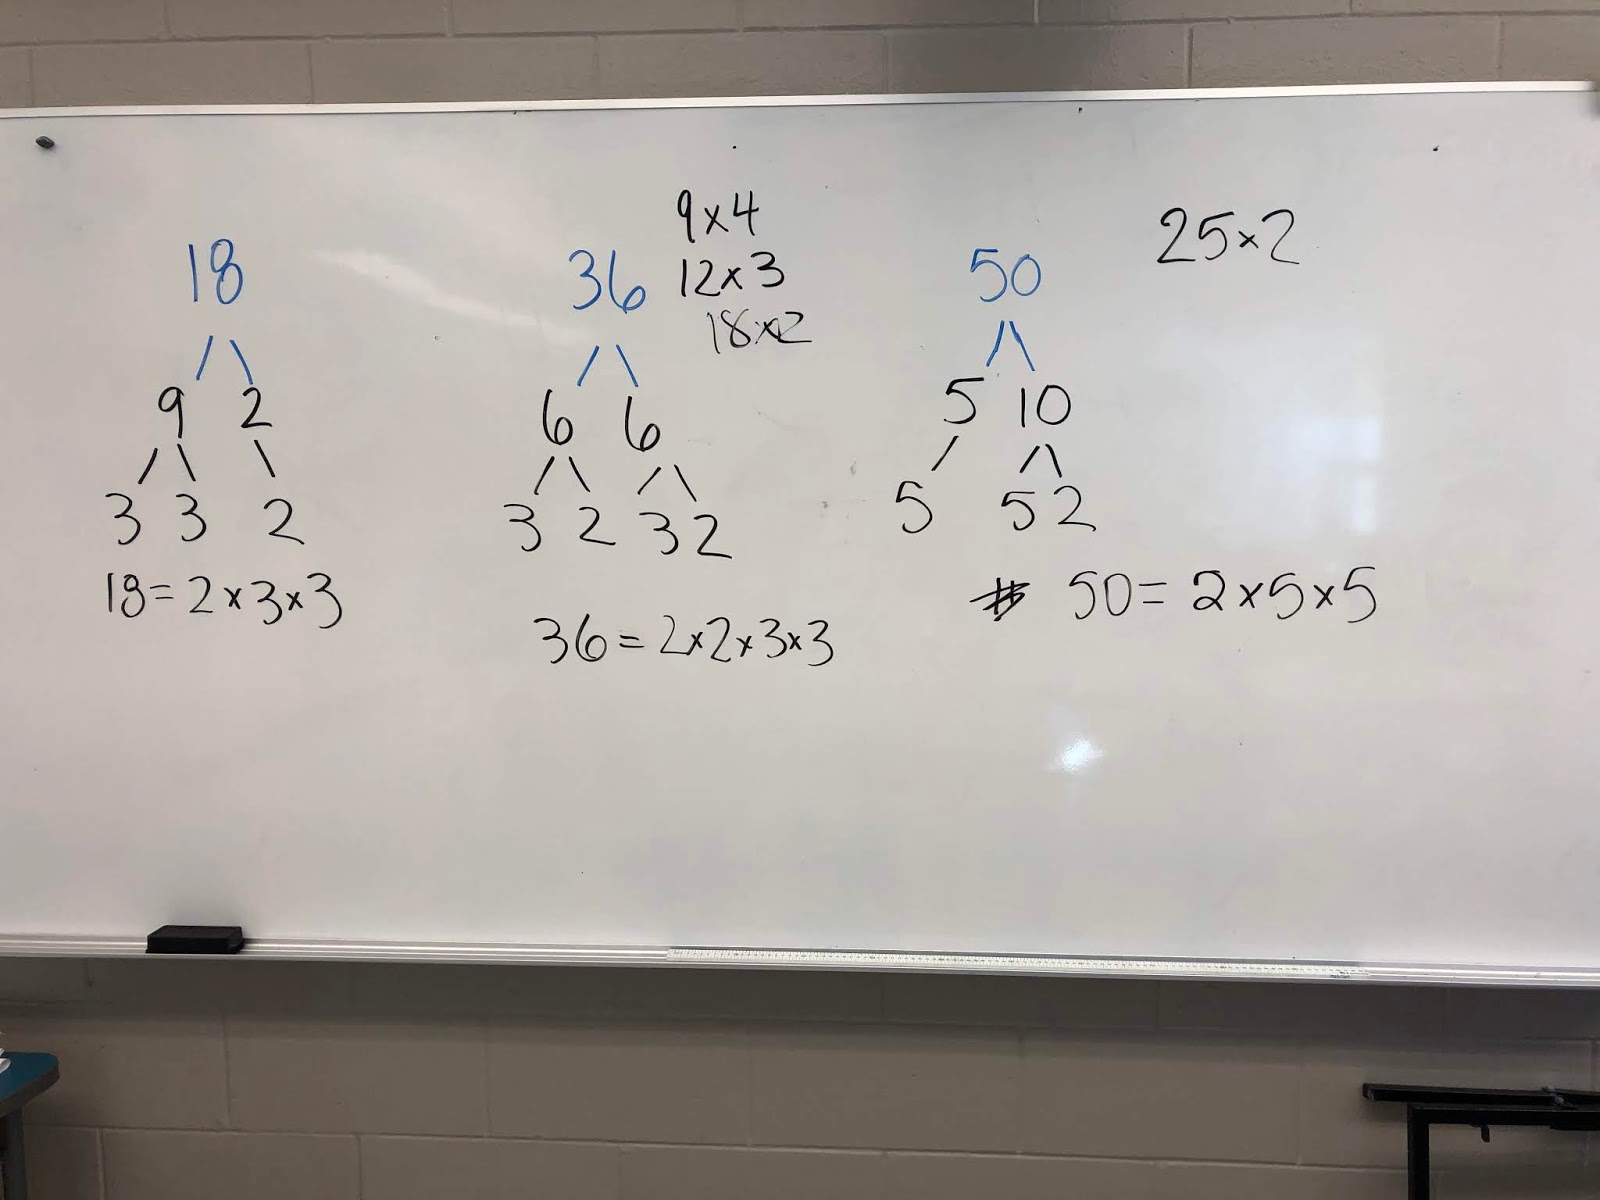 18
9 2
3 3 2
18=2×3×3
36
9×4
12×3
18×2
6 6
3 2 3 2
36=2×2×3×3
50
25×2
5 10
5 5 2
50=2×5×5